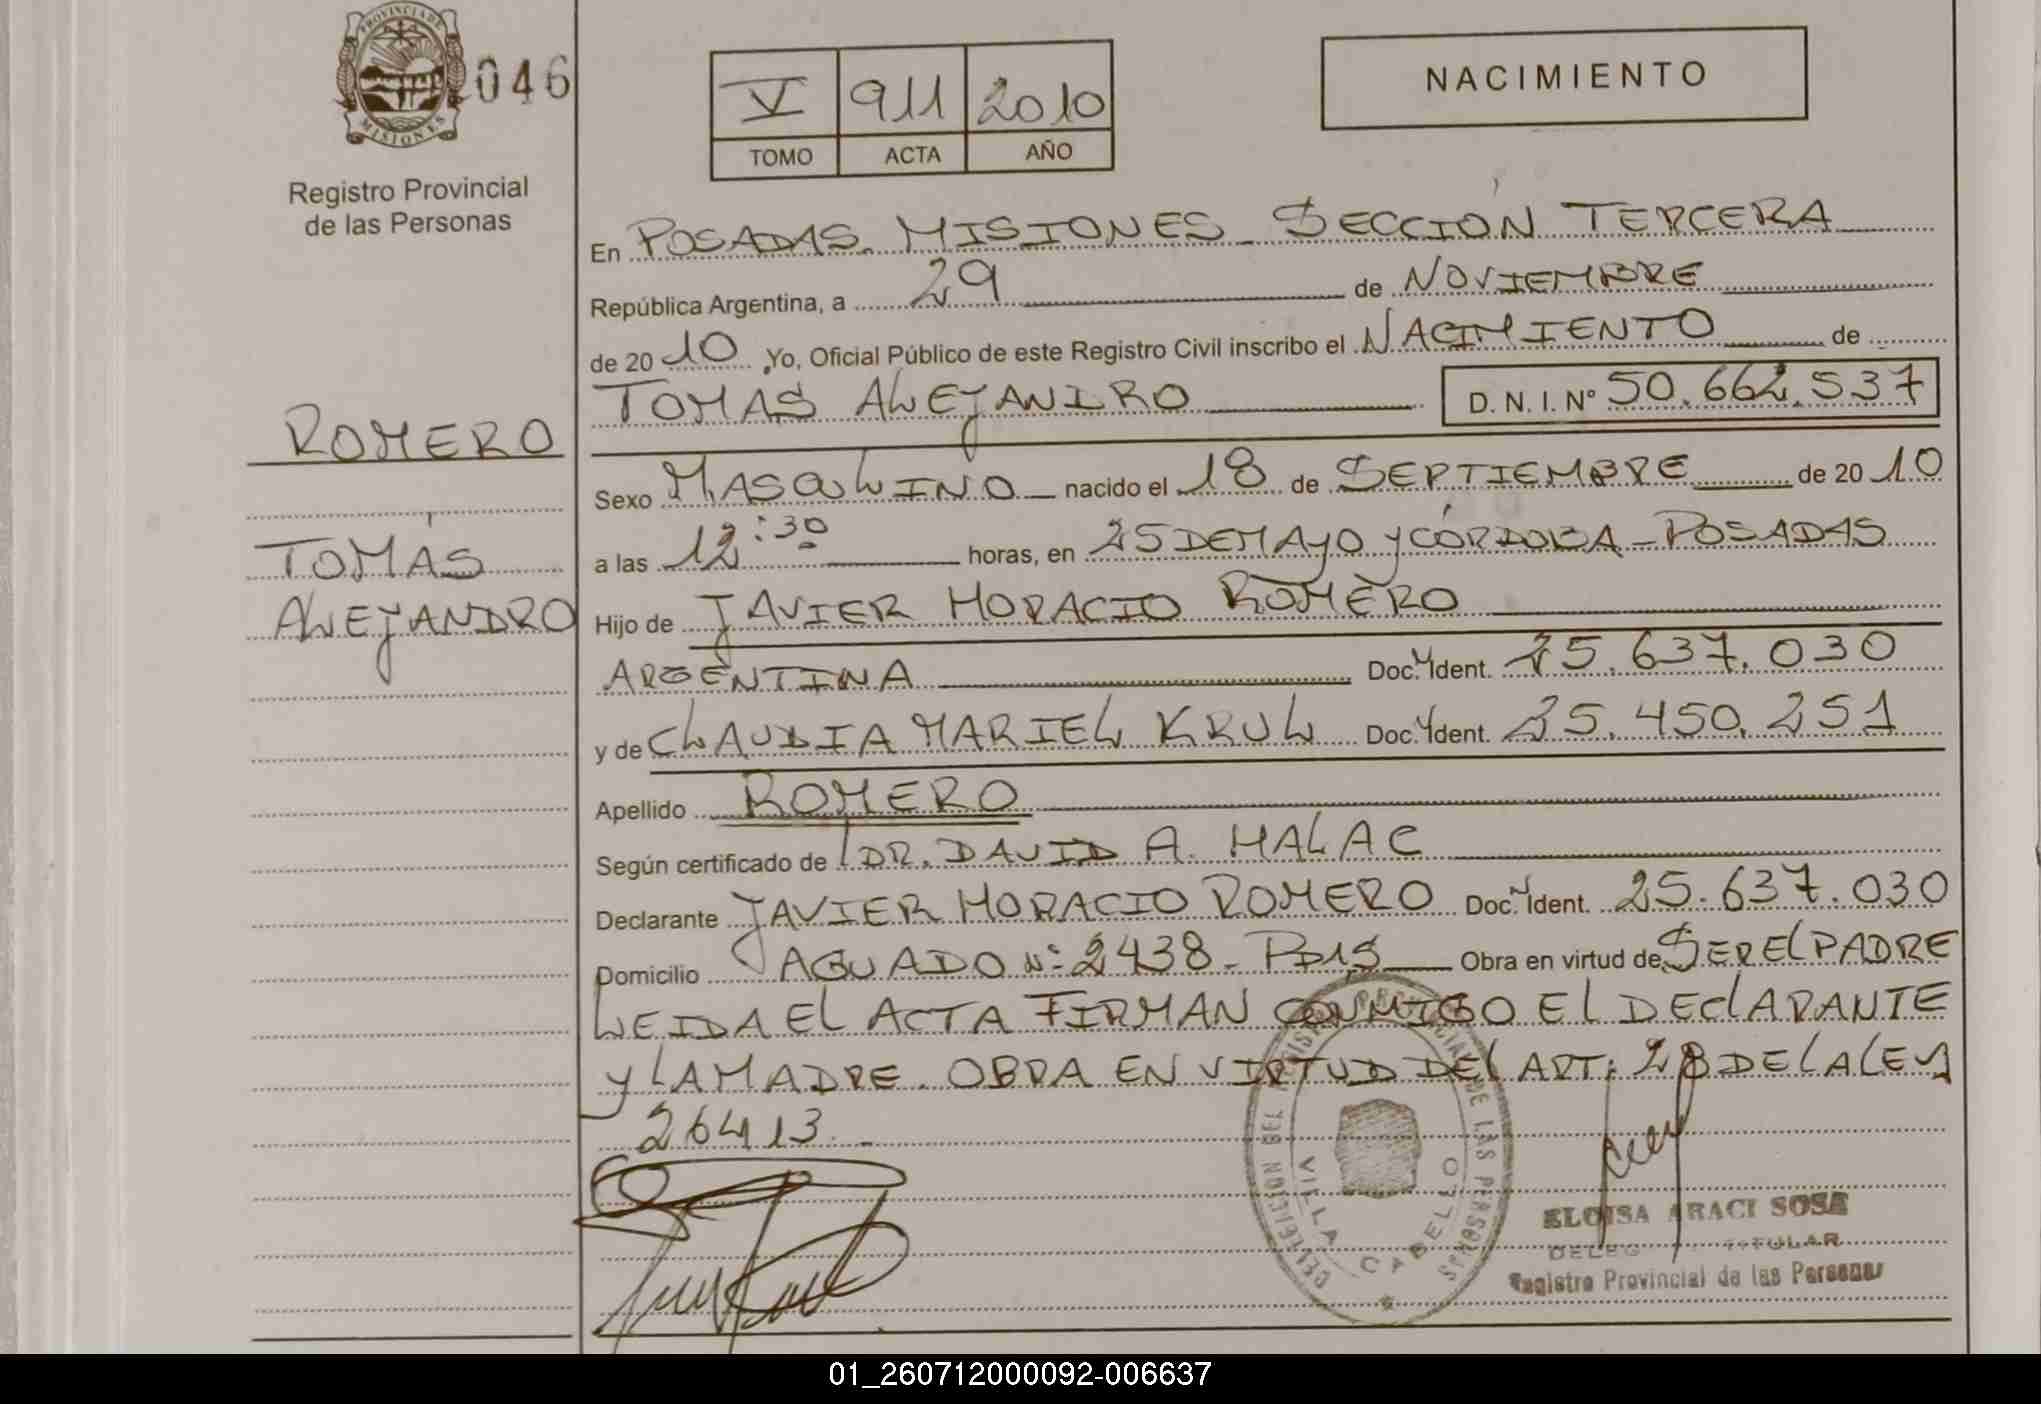 PROVINCIA DE
MISIONES
046
Registro Provincial
de las Personas
V 911 2010
TOMO ACTA AÑO
NACIMIENTO
En POSADAS. MISIONES - SECCIÓN TERCERA
República Argentina, a 29 de NOVIEMBRE
de 20 10 Yo, Oficial Público de este Registro Civil inscribo el NACIMIENTO de
TOMAS ALEJANDRO D. N. I. N° 50.662.537
ROMERO
TOMÁS
ALEJANDRO
Sexo MASCULINO nacido el 18 de SEPTIEMBRE de 20 10
a las 12:30 horas, en 25 DE MAYO Y CÓRDOBA - POSADAS
Hijo de JAVIER HORACIO ROMERO
ARGENTINA Doc. Ident. 25.637.030
y de CLAUDIA MARIEL KRUL Doc. Ident. 25.450.251
Apellido ROMERO
Según certificado de DR. DAVID A. MALAC
Declarante JAVIER HORACIO ROMERO Doc. Ident. 25.637.030
Domicilio AGUADO N° 2438 - PDAS Obra en virtud de SER EL PADRE
LEIDA EL ACTA FIRMAN CONMIGO EL DECLARANTE
Y LA MADRE. OBRA EN VIRTUD DEL ART: 28 DE LA LEY
26413.-
DELEGACION DEL REGISTRO PROVINCIAL DE LAS PERSONAS
VILLA CABELLO
ELOISA ARACI SOSA
TITULAR
Registro Provincial de las Personas
01_260712000092-006637